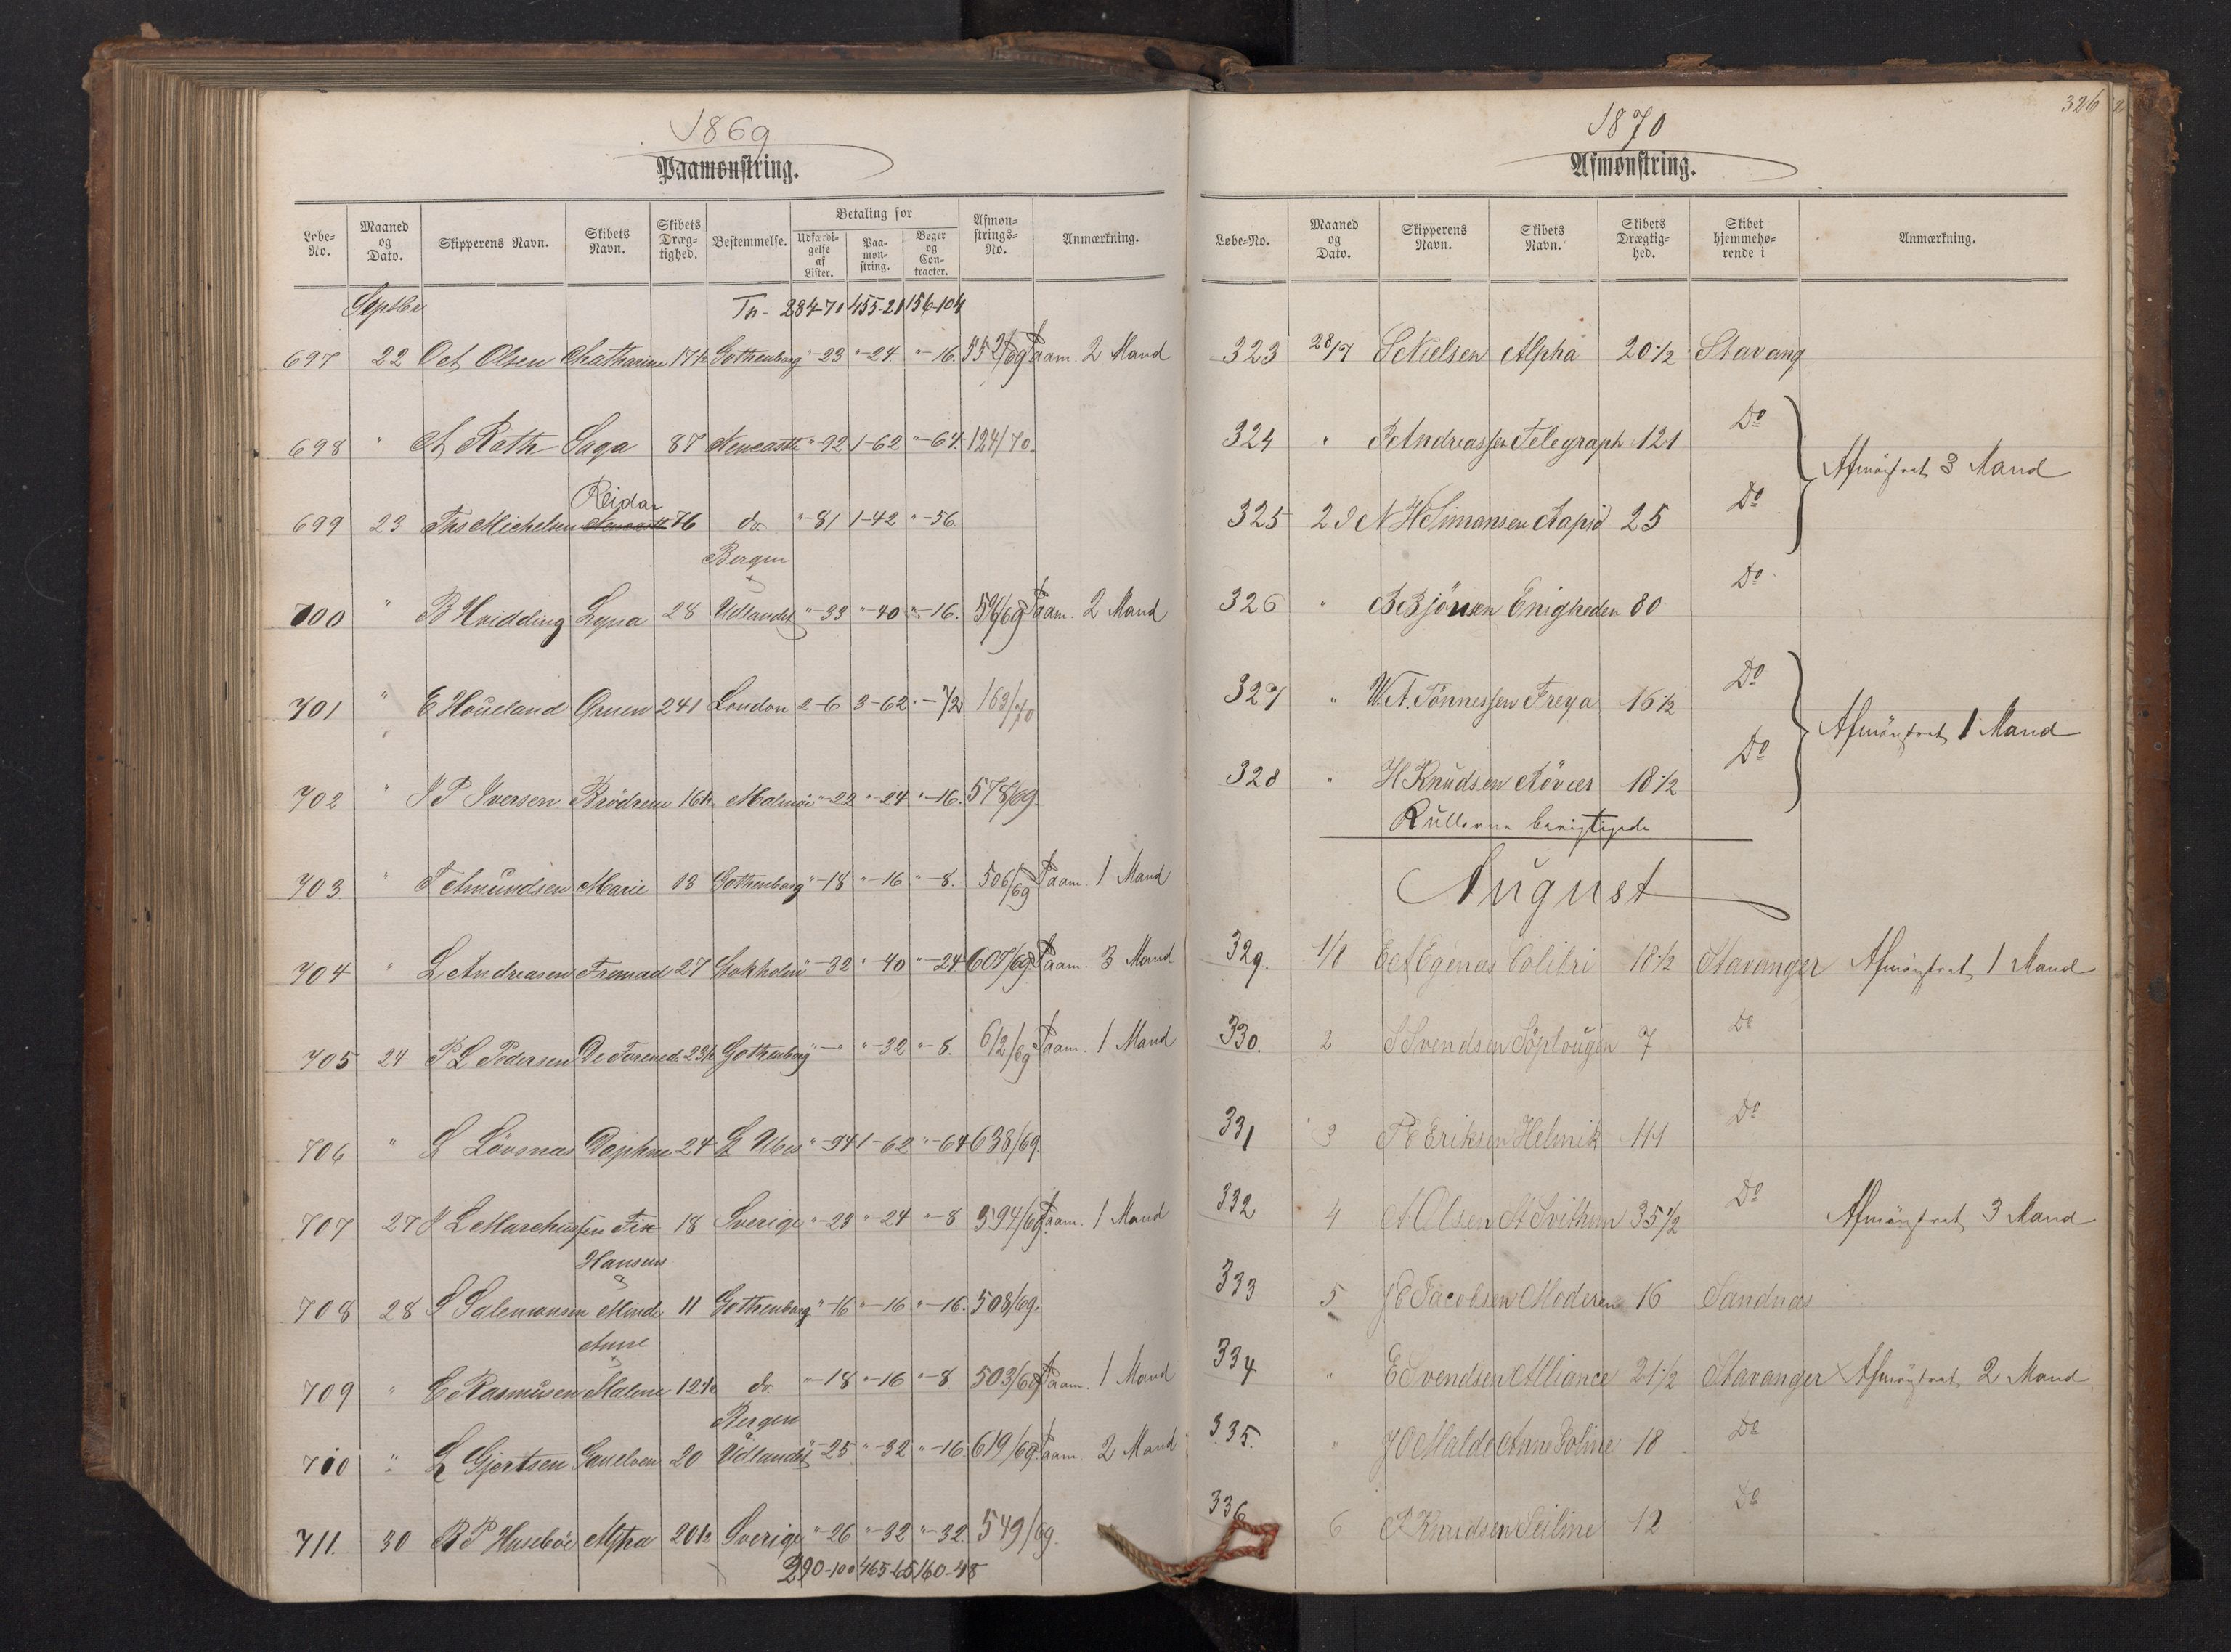 1869
Paamønstring.
Løbe-No. Maaned og Dato. Skipperens Navn. Skibets Navn. Skibets Dræg-tighed. Bestemmelse. Betaling for Udfærdi-gelse af Lister. Paa-møn-string. Bøger og Con-tracter. Afmøn-strings-No. Anmærkning.
Septbr Tr- 284-70 455-21 156-104
697 22 Oct Olsen Chatharine 17½ Gothenborg "-23 "-24 "-16. 552/69 Paam. 2 Mand
698 " A Rath Saga 87 Newcastle "-92 1-62 "-64. 124/70.
Reidar
699 23 Ths Michelsen 76 do "-81 1-42 "-56.
Bergen
700 " B Hvidding Lyna 28 Udlandet "-33 "-40 "-16. Paam. 2 Mand
701 " E Houeland 241 London 2-6 3-62 163/70
702 " J P Iversen Brödrene 16½ Malmöe "-22 "-24 "-16. 578/69.
703 " T Amundsen Marie 13 Gothenborg "-18 "-16 "-8. 506/69 Paam. 1 Mand
704 " L Andreasen Fremad 27 Stokholm "-32 "-40 "-24 607/69. Paam. 3 Mand
705 24 P L Pedersen De Forenede 23½ Gothenborg "-" "-32 "-8. 612/69 Paam. 1 Mand
706 " L Lövsnæs Daphne 24 St Ubes "-94 1-62 "-64 638/69.
707 27 L Marchussen Fix 18 Sverige "-23 "-24 "-8. 594/69. Paam. 1 Mand
Hansens
708 28 S Salemonsen Minde 11 Gothenborg "-16 "-16 "-16. 508/69.
Anne
709 " E Rasmusen Malene 12½ do "-18 "-16 "-8 503/69 Paam. 1 Mand
Bergen
710 " L Gjertsen 20 Udlandet "-25 "-32 "-16. 619/69. Paam. 2 Mand
711. 30 B P Huseböe Alpha 20½ Sverige "-26 "-32 "-32. 549/69.
290-100 465-65 160-48
326
1870
Afmønstring.
Løbe-No. Maaned og Dato. Skipperens Navn. Skibets Navn. Skibets Drægtig-hed. Skibet hjemmehø-rende i Anmærkning.
323 28/7 S Nielsen Alpha 20½ Stavang
324 " P Andreassen Telegraph 121 Do
Afmönstret 3 Mand
325 29 N H Simonsen Rapid 25 Do
326 " B Bjönsen Enigheden 80 Do
327 " W. A. Tönnessen Freya 16½ Do
Afmönstret 1 Mand
328 " H Knudsen Röver 18½ Do
Rullerne berigtigede
August
329. 1/8 E A Egenæs Colibri 18½ Stavanger Afmönstret 1 Mand
330. 2 S Svendsen Söplougen 7 Do
331 3 P E Eriksen Helmik 44 Do
332 4 A Olsen St Svithun 35½ Do Afmönstret 3 Mand
333 5 J E Jacobsen Moderen 16 Sandnæs
334 " E Svendsen Alliance 21½ Stavanger Afmönstret 2 Mand
335. " J O Malde Anne Poline 18 Do
336 6 P Knudsen Seiline 12 Do